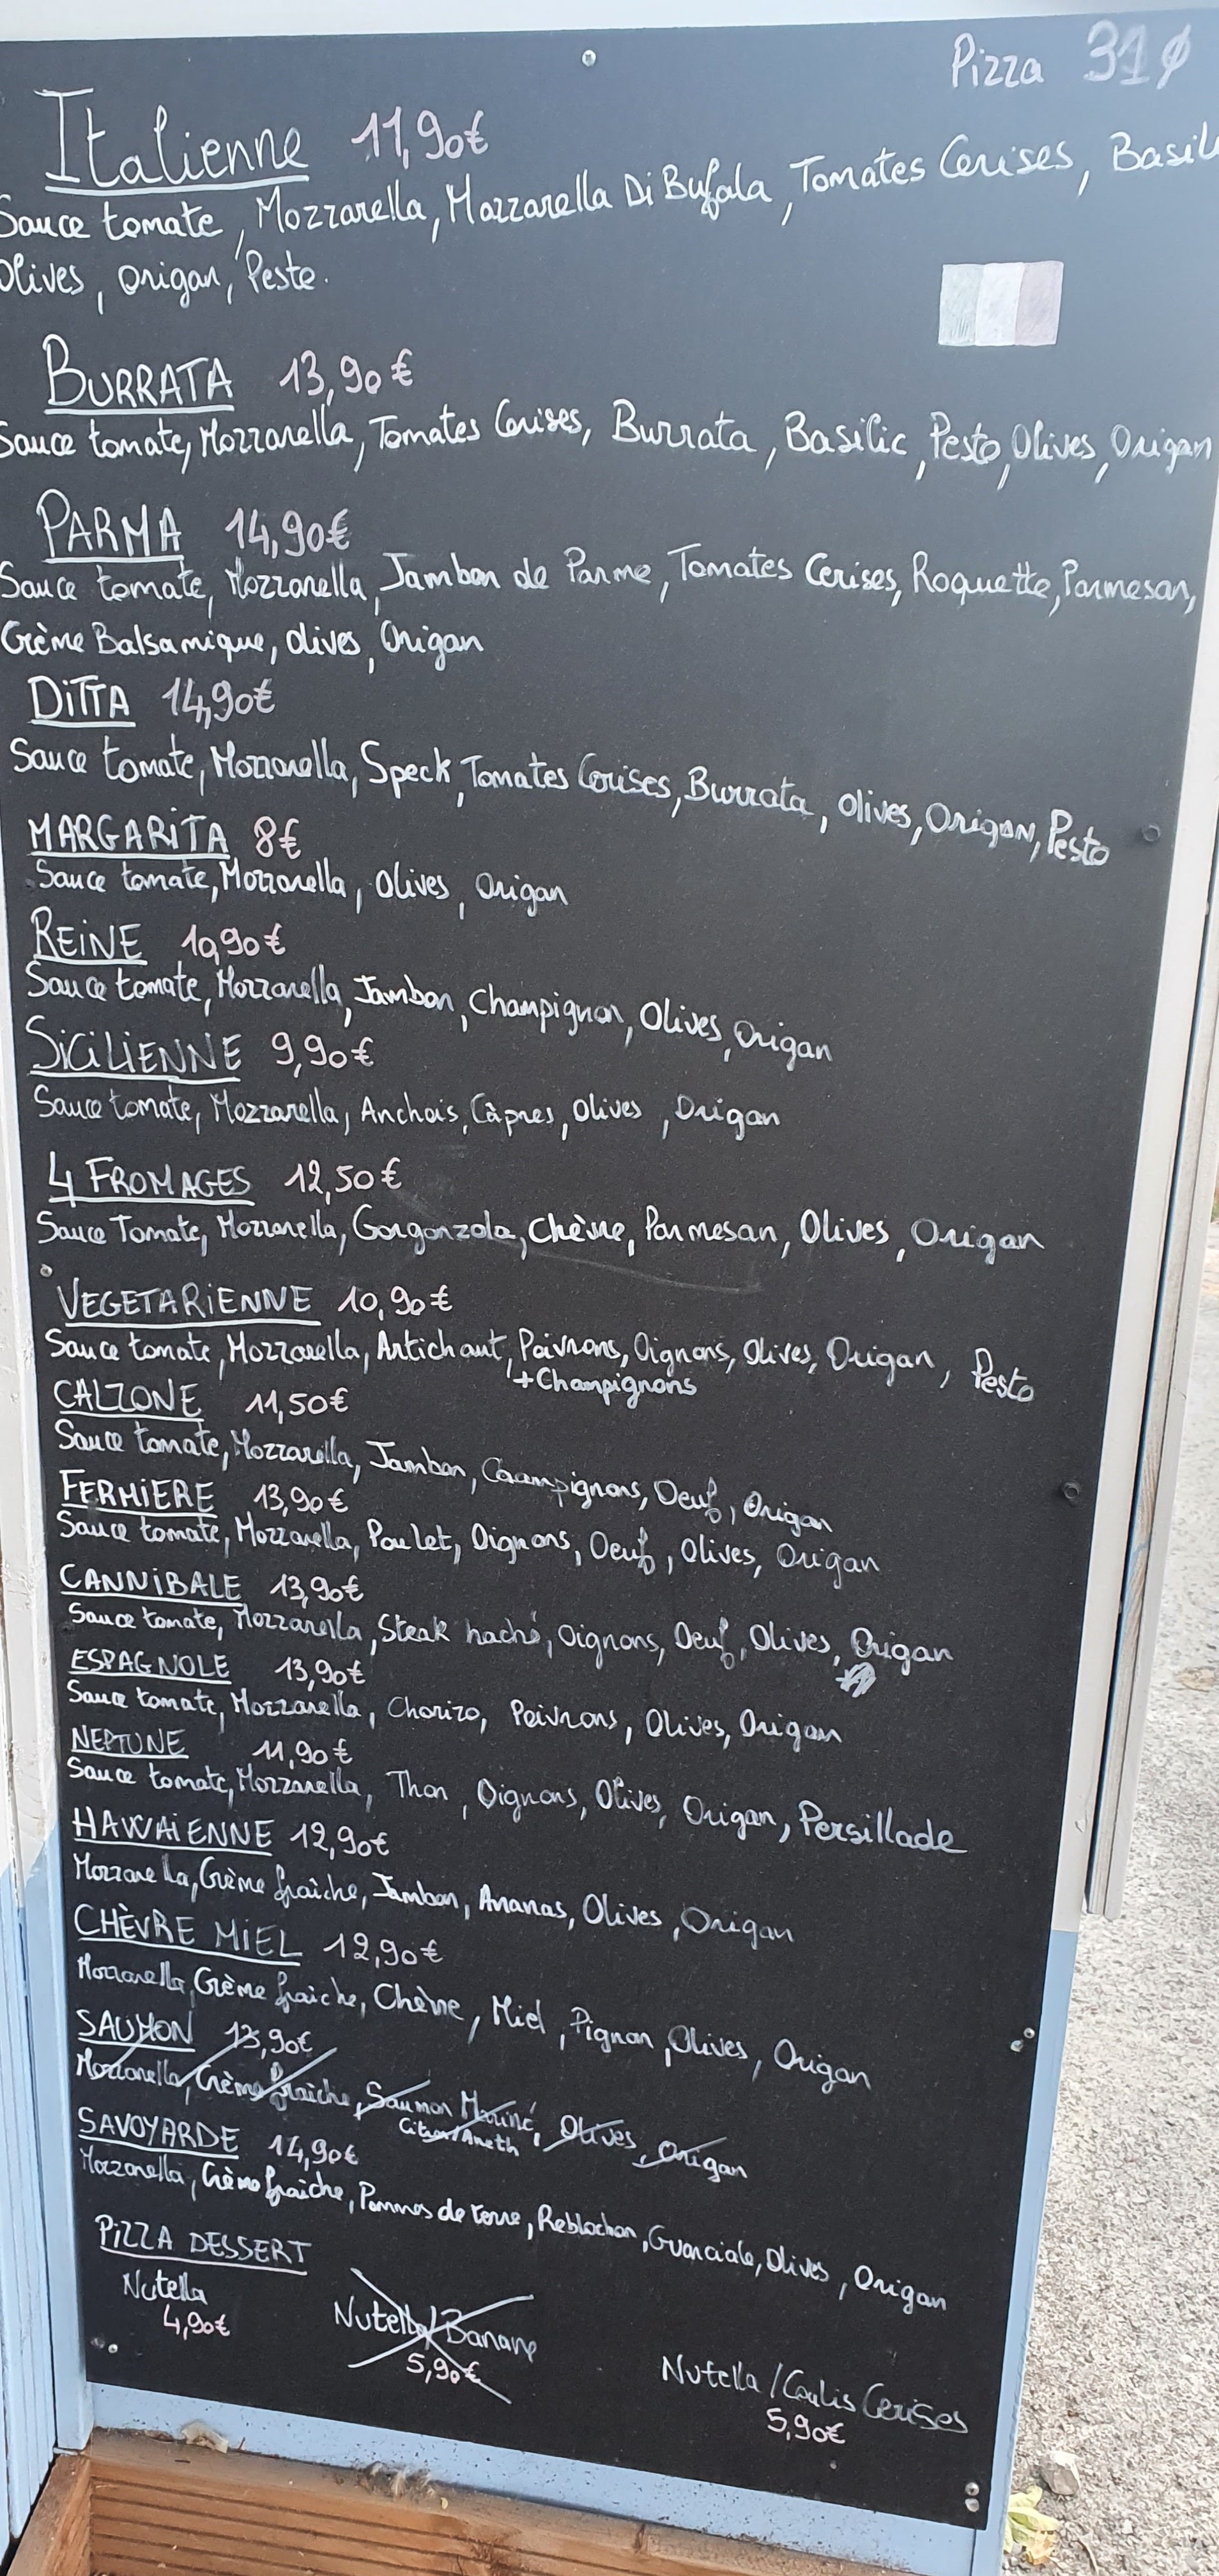 Pizza 31Ø
Italienne 11,90€
Sauce tomate, Mozzarella, Mozzarella Di Bufala, Tomates Cerises, Basil
Olives, Origan, Pesto.
BURRATA 13,90€
Sauce tomate, Mozzarella, Tomates Cerises, Burrata, Basilic, Pesto, Olives, Origan
PARMA 14,90€
Sauce tomate, Mozzarella, Jambon de Parme, Tomates Cerises, Roquette, Parmesan,
Crème Balsamique, olives, Origan
DiTTA 14,90€
Sauce tomate, Mozzarella, Speck, Tomates Cerises, Burrata, Olives, Origan, Pesto
MARGARiTA 8€
Sauce tomate, Mozzarella, Olives, Origan
REiNE 10,90€
Sauce tomate, Mozzarella, Jambon, Champignon, Olives, Origan
SiCiLiENNE 9,90€
Sauce tomate, Mozzarella, Anchois, Câpres, Olives, Origan
4 FROMAGES 12,50€
Sauce Tomate, Mozzarella, Gorgonzola, Chèvre, Parmesan, Olives, Origan
VEGETARiENNE 10,90€
Sauce tomate, Mozzarella, Artichaut, Poivrons, Oignons, Olives, Origan, Pesto
+Champignons
CALZONE 11,50€
Sauce tomate, Mozzarella, Jambon, Champignons, Oeuf, Origan
FERMiERE 13,90€
Sauce tomate, Mozzarella, Poulet, Oignons, Oeuf, Olives, Origan
CANNiBALE 13,90€
Sauce tomate, Mozzarella, Steak haché, Oignons, Oeuf, Olives, Origan
ESPAGNOLE 13,90€
Sauce tomate, Mozzarella, Chorizo, Poivrons, Olives, Origan
NEPTUNE 11,90€
Sauce tomate, Mozzarella, Thon, Oignons, Olives, Origan, Persillade
HAWAiENNE 12,90€
Mozzarella, Crème fraîche, Jambon, Ananas, Olives, Origan
CHÈVRE MiEL 12,90€
Mozzarella, Crème fraiche, Chèvre, Miel, Pignon, Olives, Origan
SAUMON 13,90€
Mozzarella, Crème fraiche, Saumon Mariné, Olives, Origan
Citron/Aneth
SAVOYARDE 14,90€
Mozzarella, Crème fraîche, Pommes de terre, Reblochon, Guanciale, Olives, Origan
PiZZA DESSERT
Nutella
4,90€
Nutella/Banane
5,90€
Nutella/Coulis Cerises
5,90€